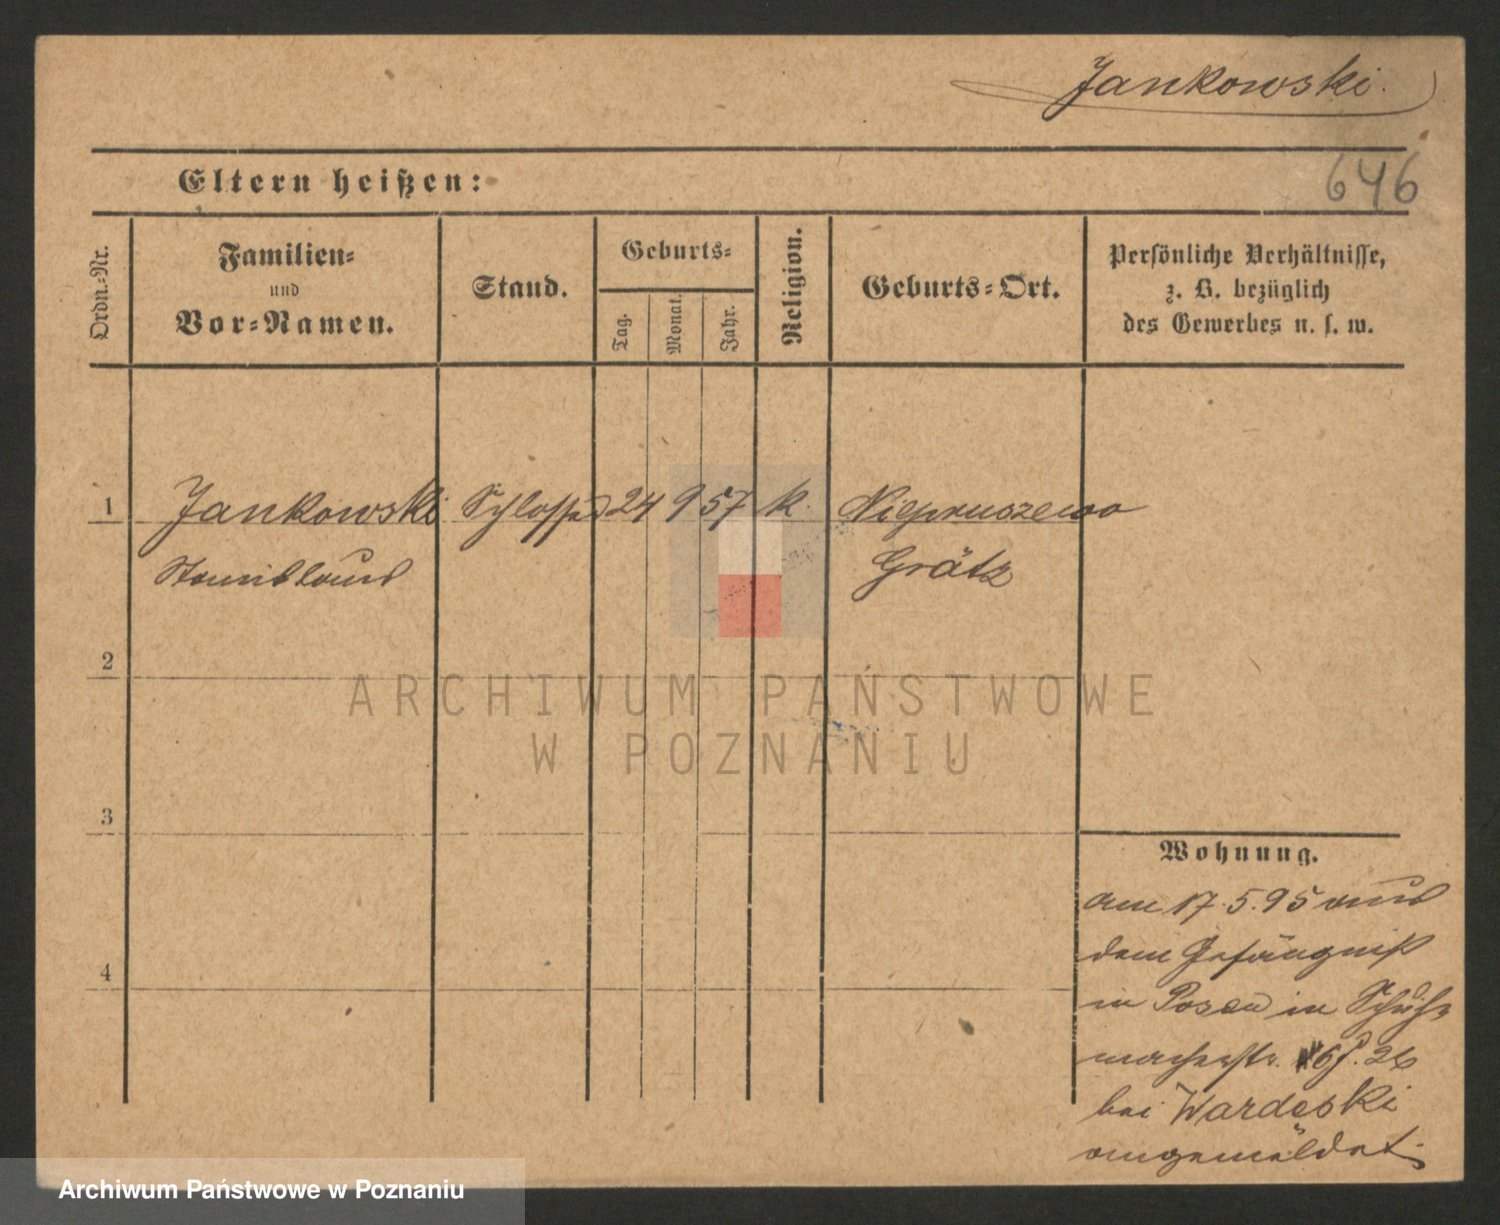 Jankowski.
646
Eltern heißen:
Ordn.-Nr.
Familien-
und
Vor-Namen.
Stand.
Geburts-
Tag.
Monat.
Jahr.
Religion.
Geburts-Ort.
Persönliche Verhältnisse,
z. B. bezüglich
des Gewerbes u. s. w.
1 Jankowski Schlosser 24 9 57 k. Niepruszewo
Stanislaus Grätz
2
3
4
Wohnung.
am 17.5.95 aus
dem Gefängniß
in Posen in Schuh-
macherstr. 26
bei Wardeski
angemeldet.
ARCHIWUM PAŃSTWOWE
W POZNANIU
Archiwum Państwowe w Poznaniu